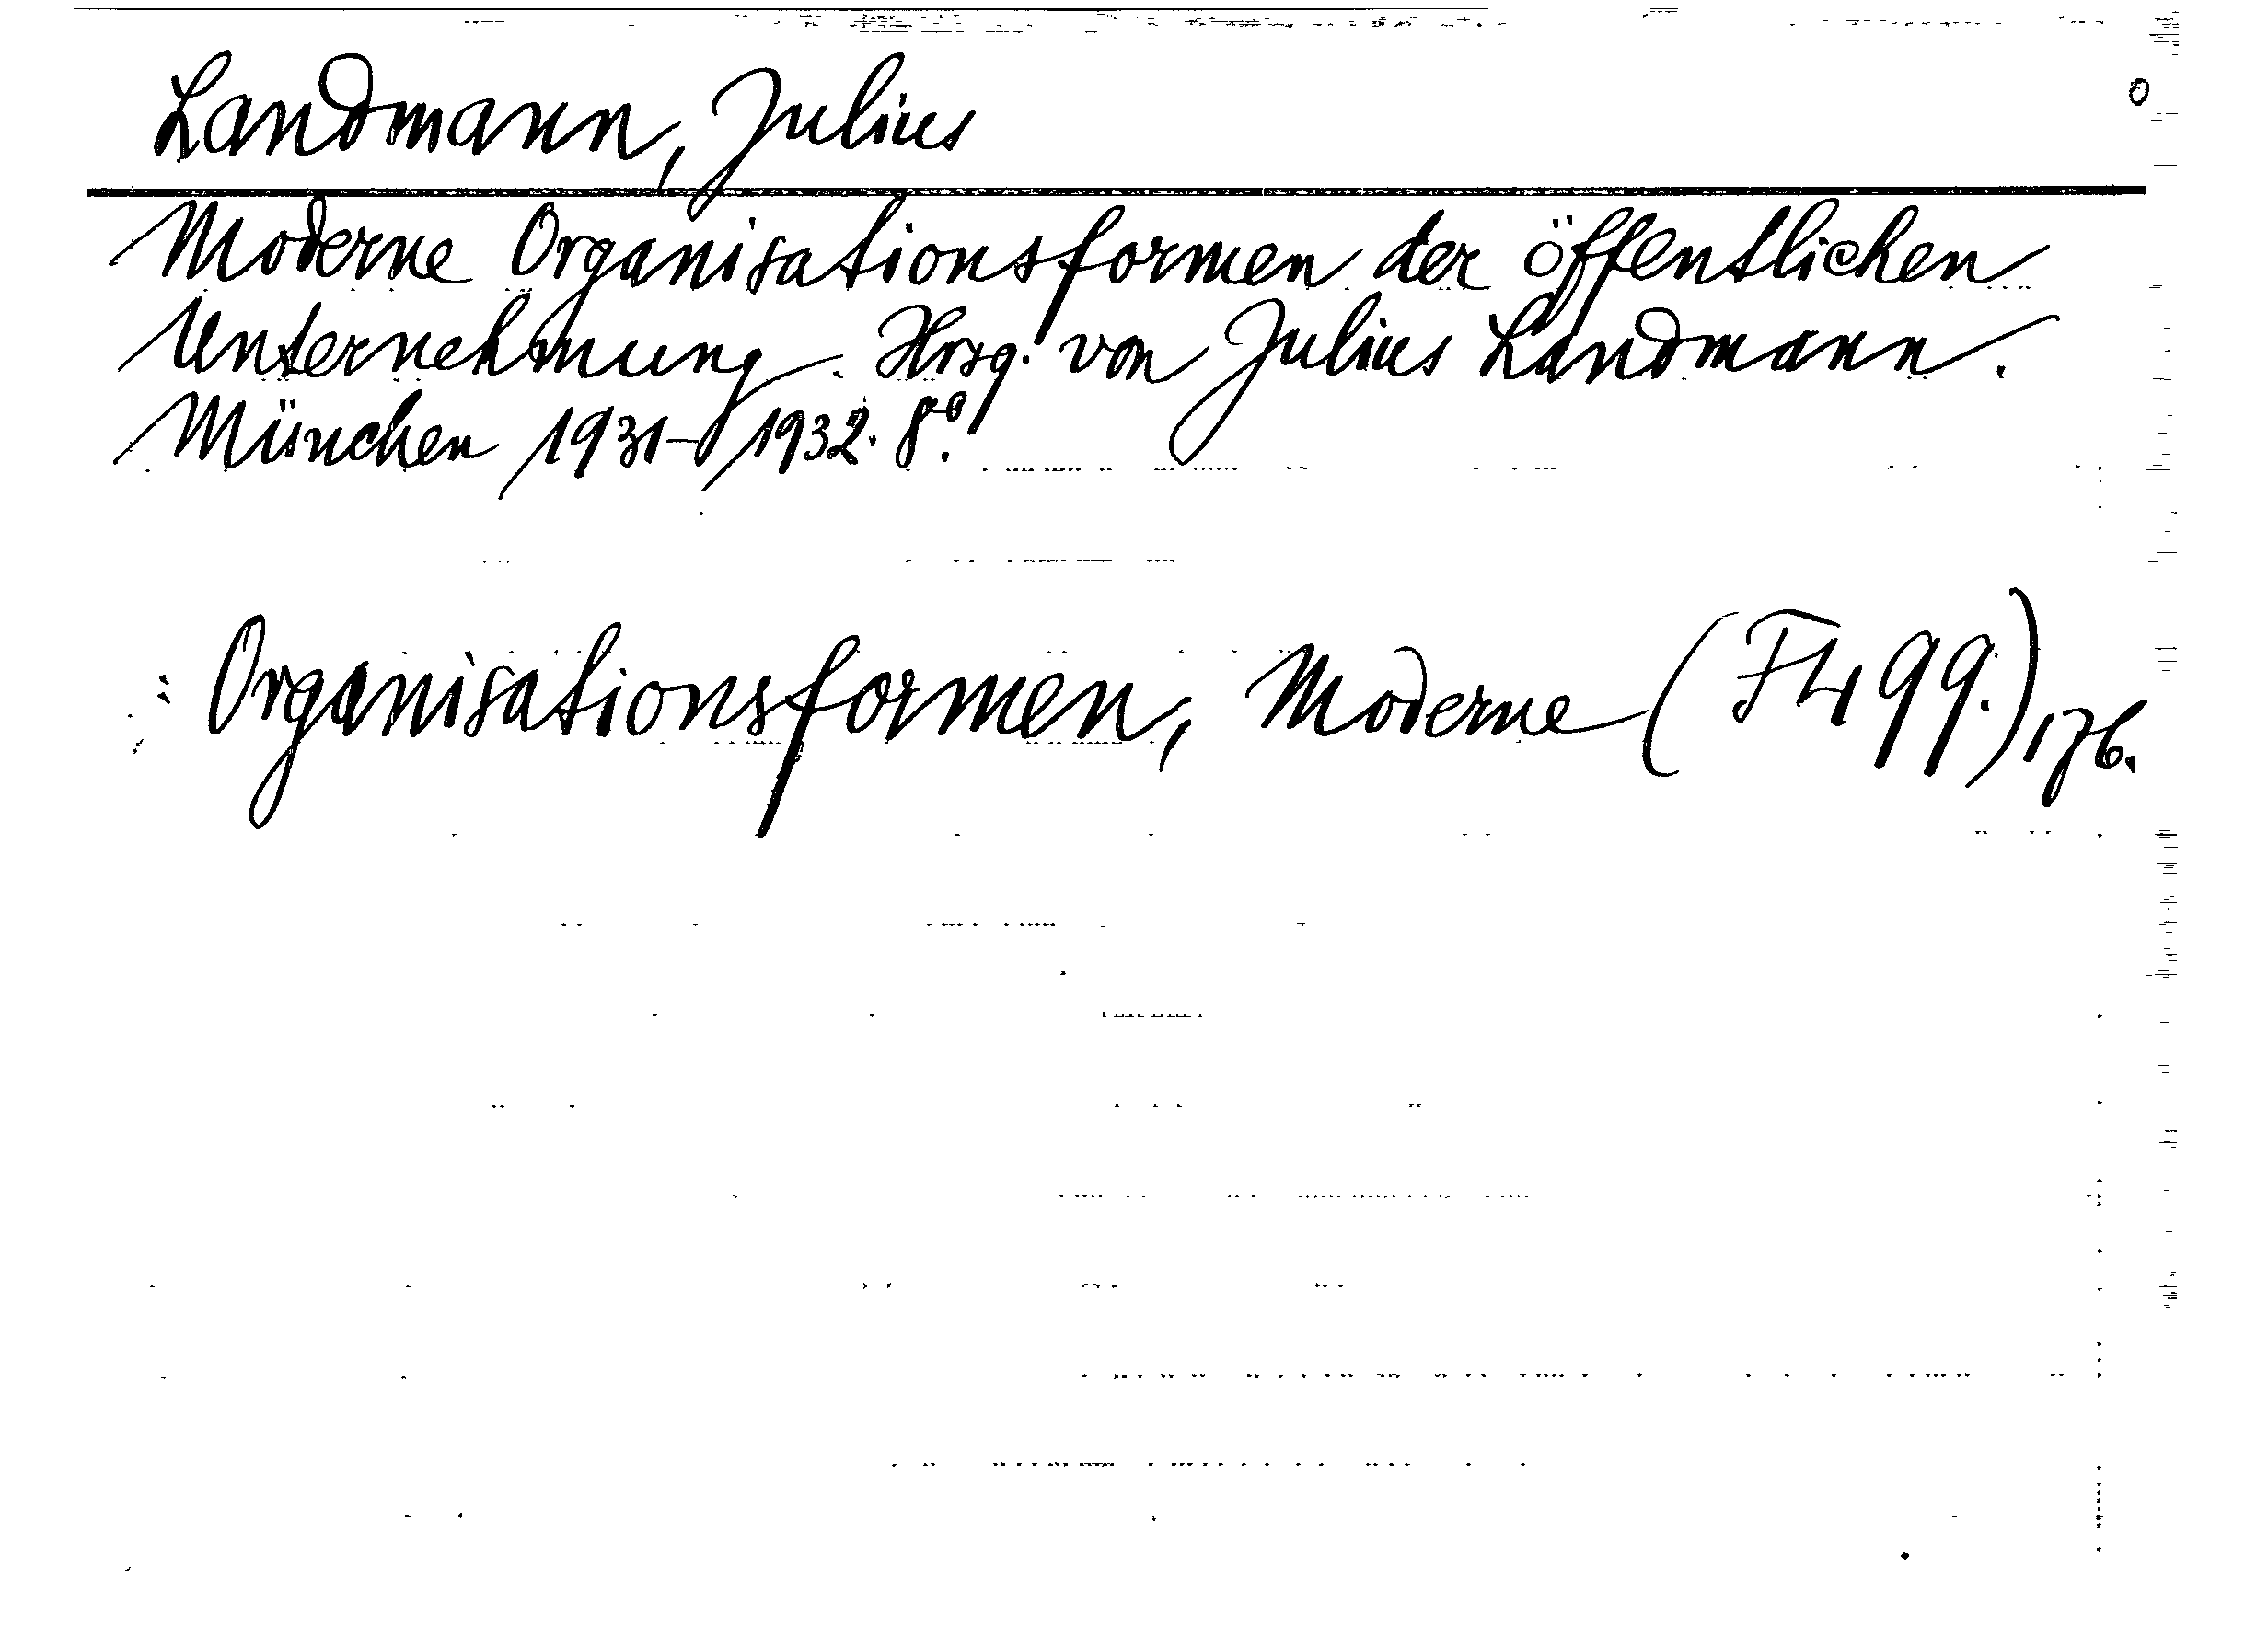 Landmann, Julius
Moderne Organisationsformen der öffentlichen
Unternehmung. Hrsg. von Julius Landmann.
München 1931–1932. 8°.
: Organisationsformen, Moderne (F499.) 176.